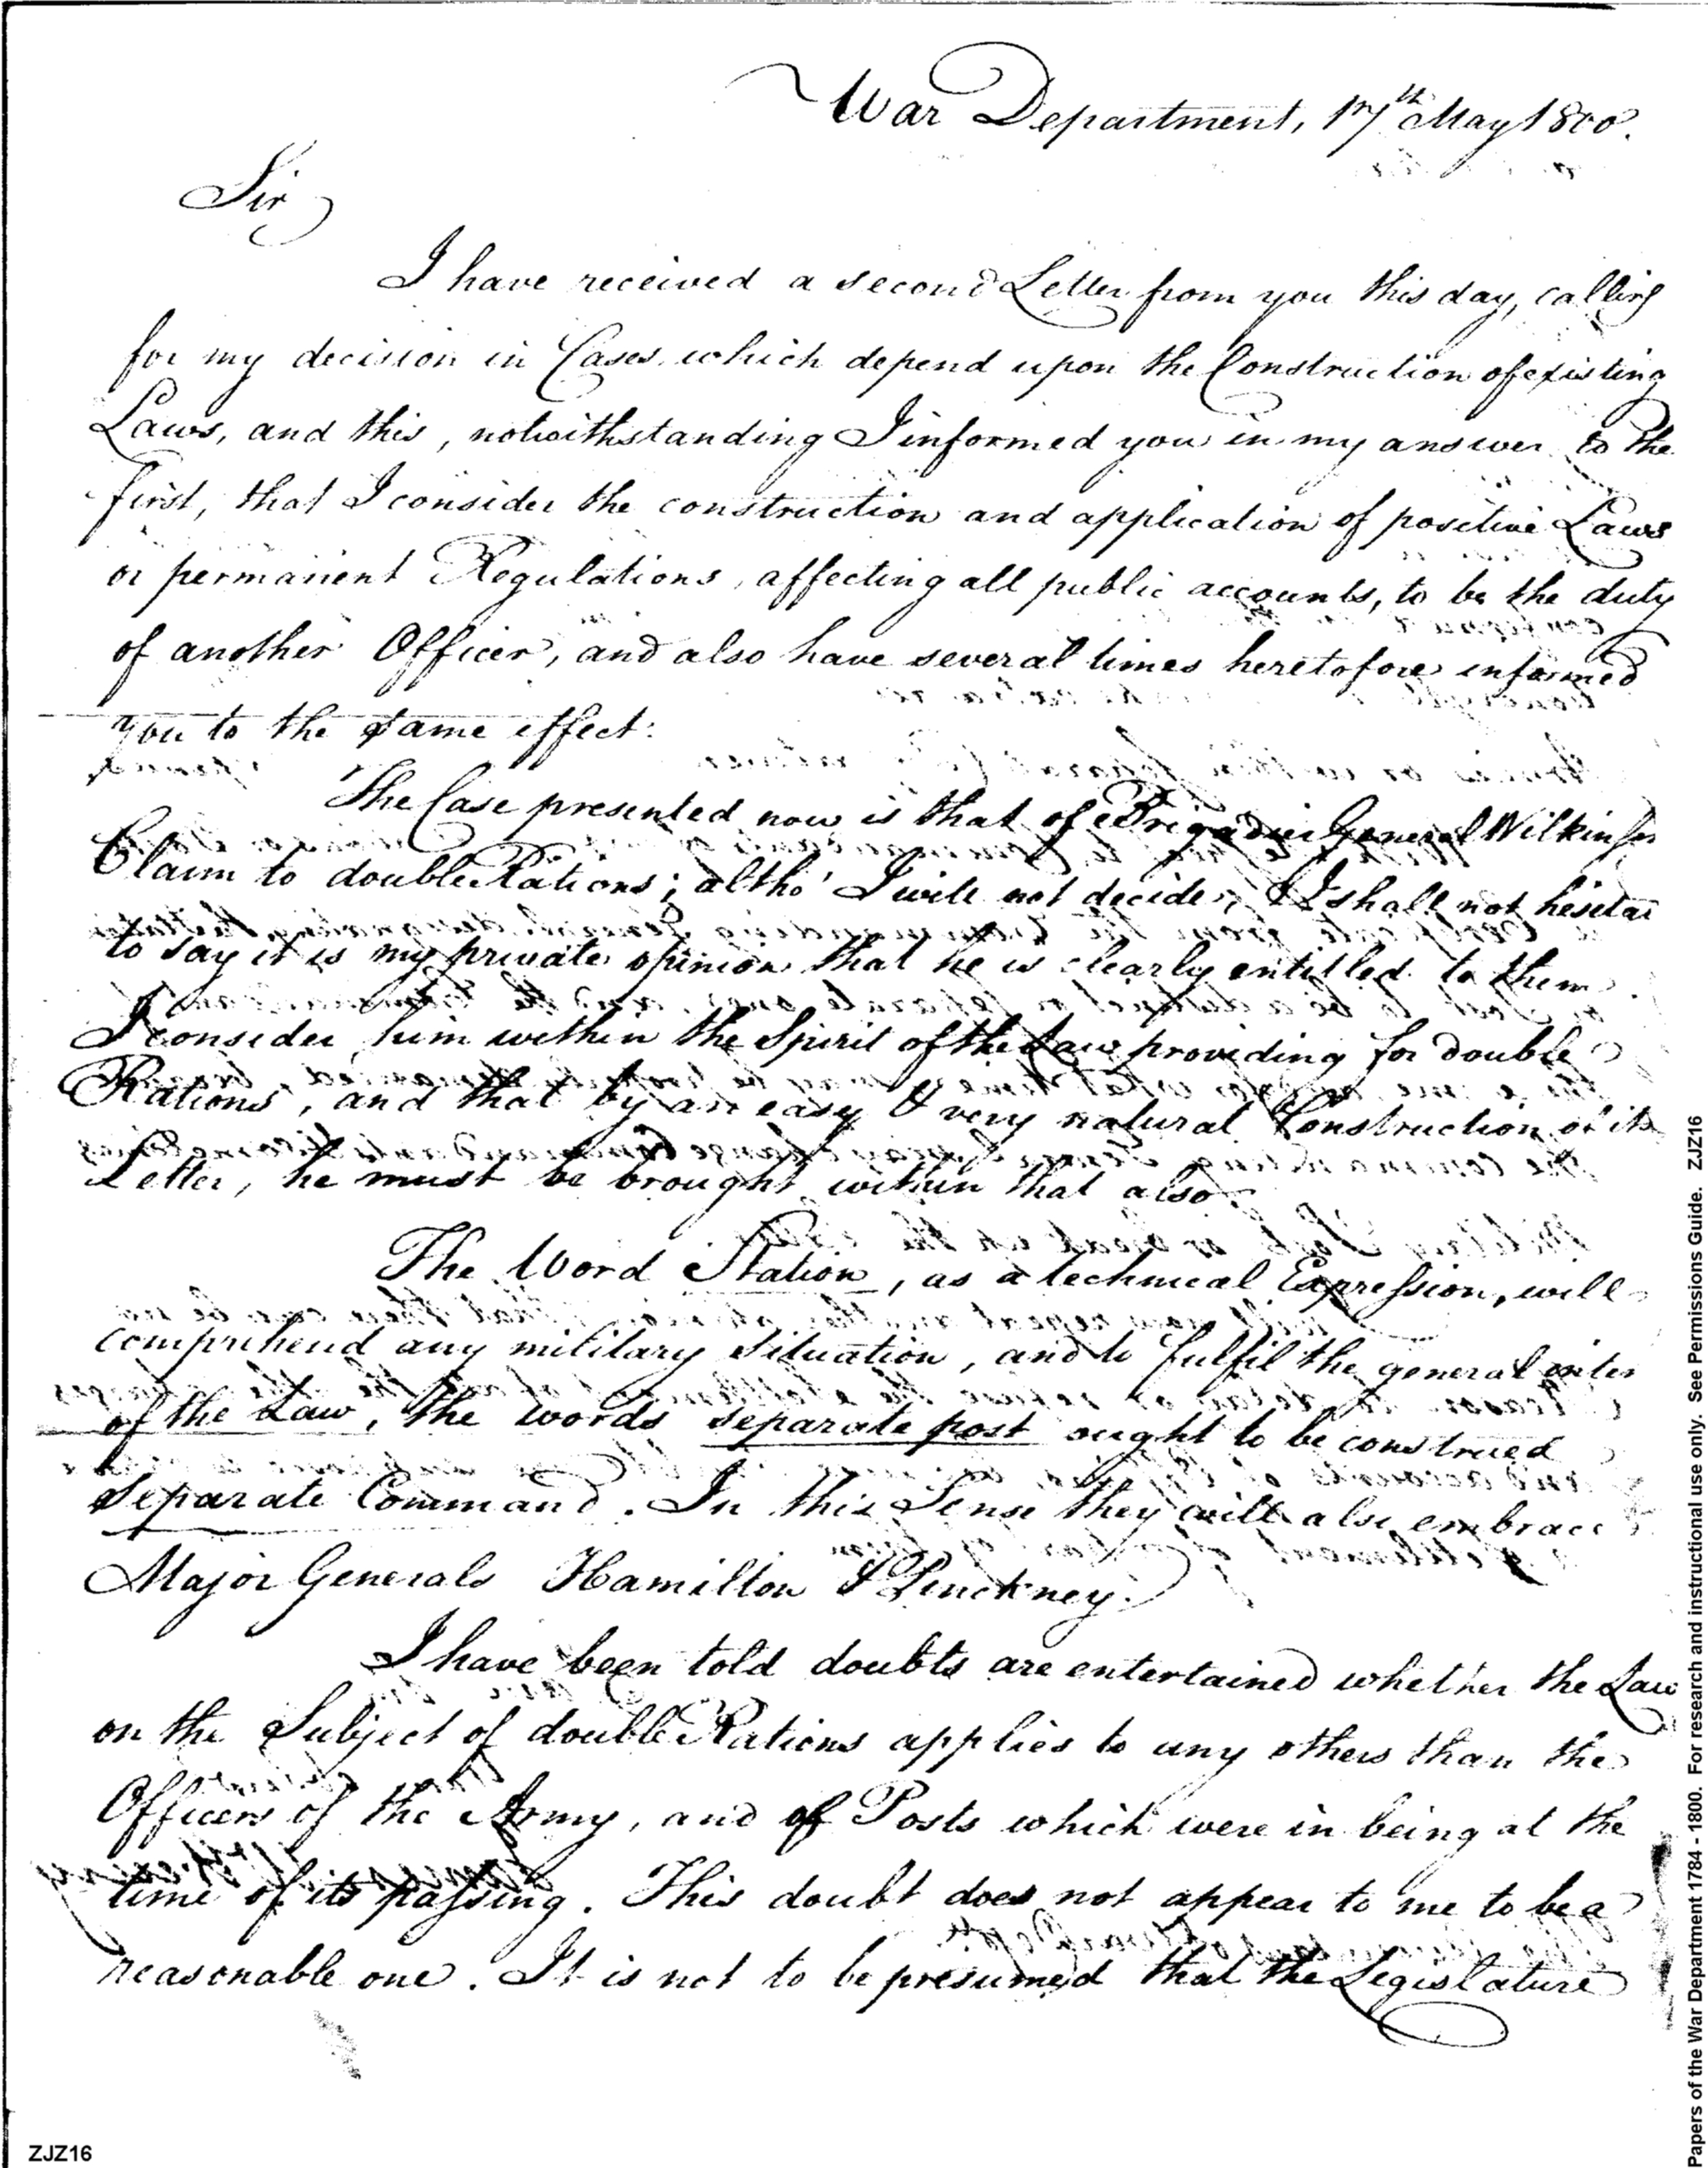 War Department, 17th May 1800.
Sir
I have received a second Letter from you this day, calling
for my decision in Cases which depend upon the Construction of existing
Laws, and this, notwithstanding I informed you in my answer to the
first, that I consider the construction and application of positive Laws
or permanent Regulations, affecting all public accounts, to be the duty
of another Officer, and also have several times heretofore informed
you to the same effect:
The Case presented now is that of Brigadier General Wilkinson
Claim to double Rations; altho' I will not decide, I shall not hesitate
to say it is my private opinion that he is clearly entitled to them.
I consider him within the Spirit of the Law providing for double
Rations, and that by an easy & very natural Construction of its
Letter, he must be brought within that also.
The Word Station, as a technical Expression, will
comprehend any military situation, and to fulfil the general
of the Law, the words separate post ought to be construed
separate Command. In this Sense they will also embrace
Major Generals Hamilton & Pinckney.
I have been told doubts are entertained whether the Law
on the Subject of double Rations applies to any others than the
Officers of the Army, and of Posts which were in being at the
time of its passing. This doubt does not appear to me to be a
reasonable one. It is not to be presumed that the Legislature
ZJZ16
Papers of the War Department 1784 - 1800. For research and instructional use only. See Permissions Guide. ZJZ16